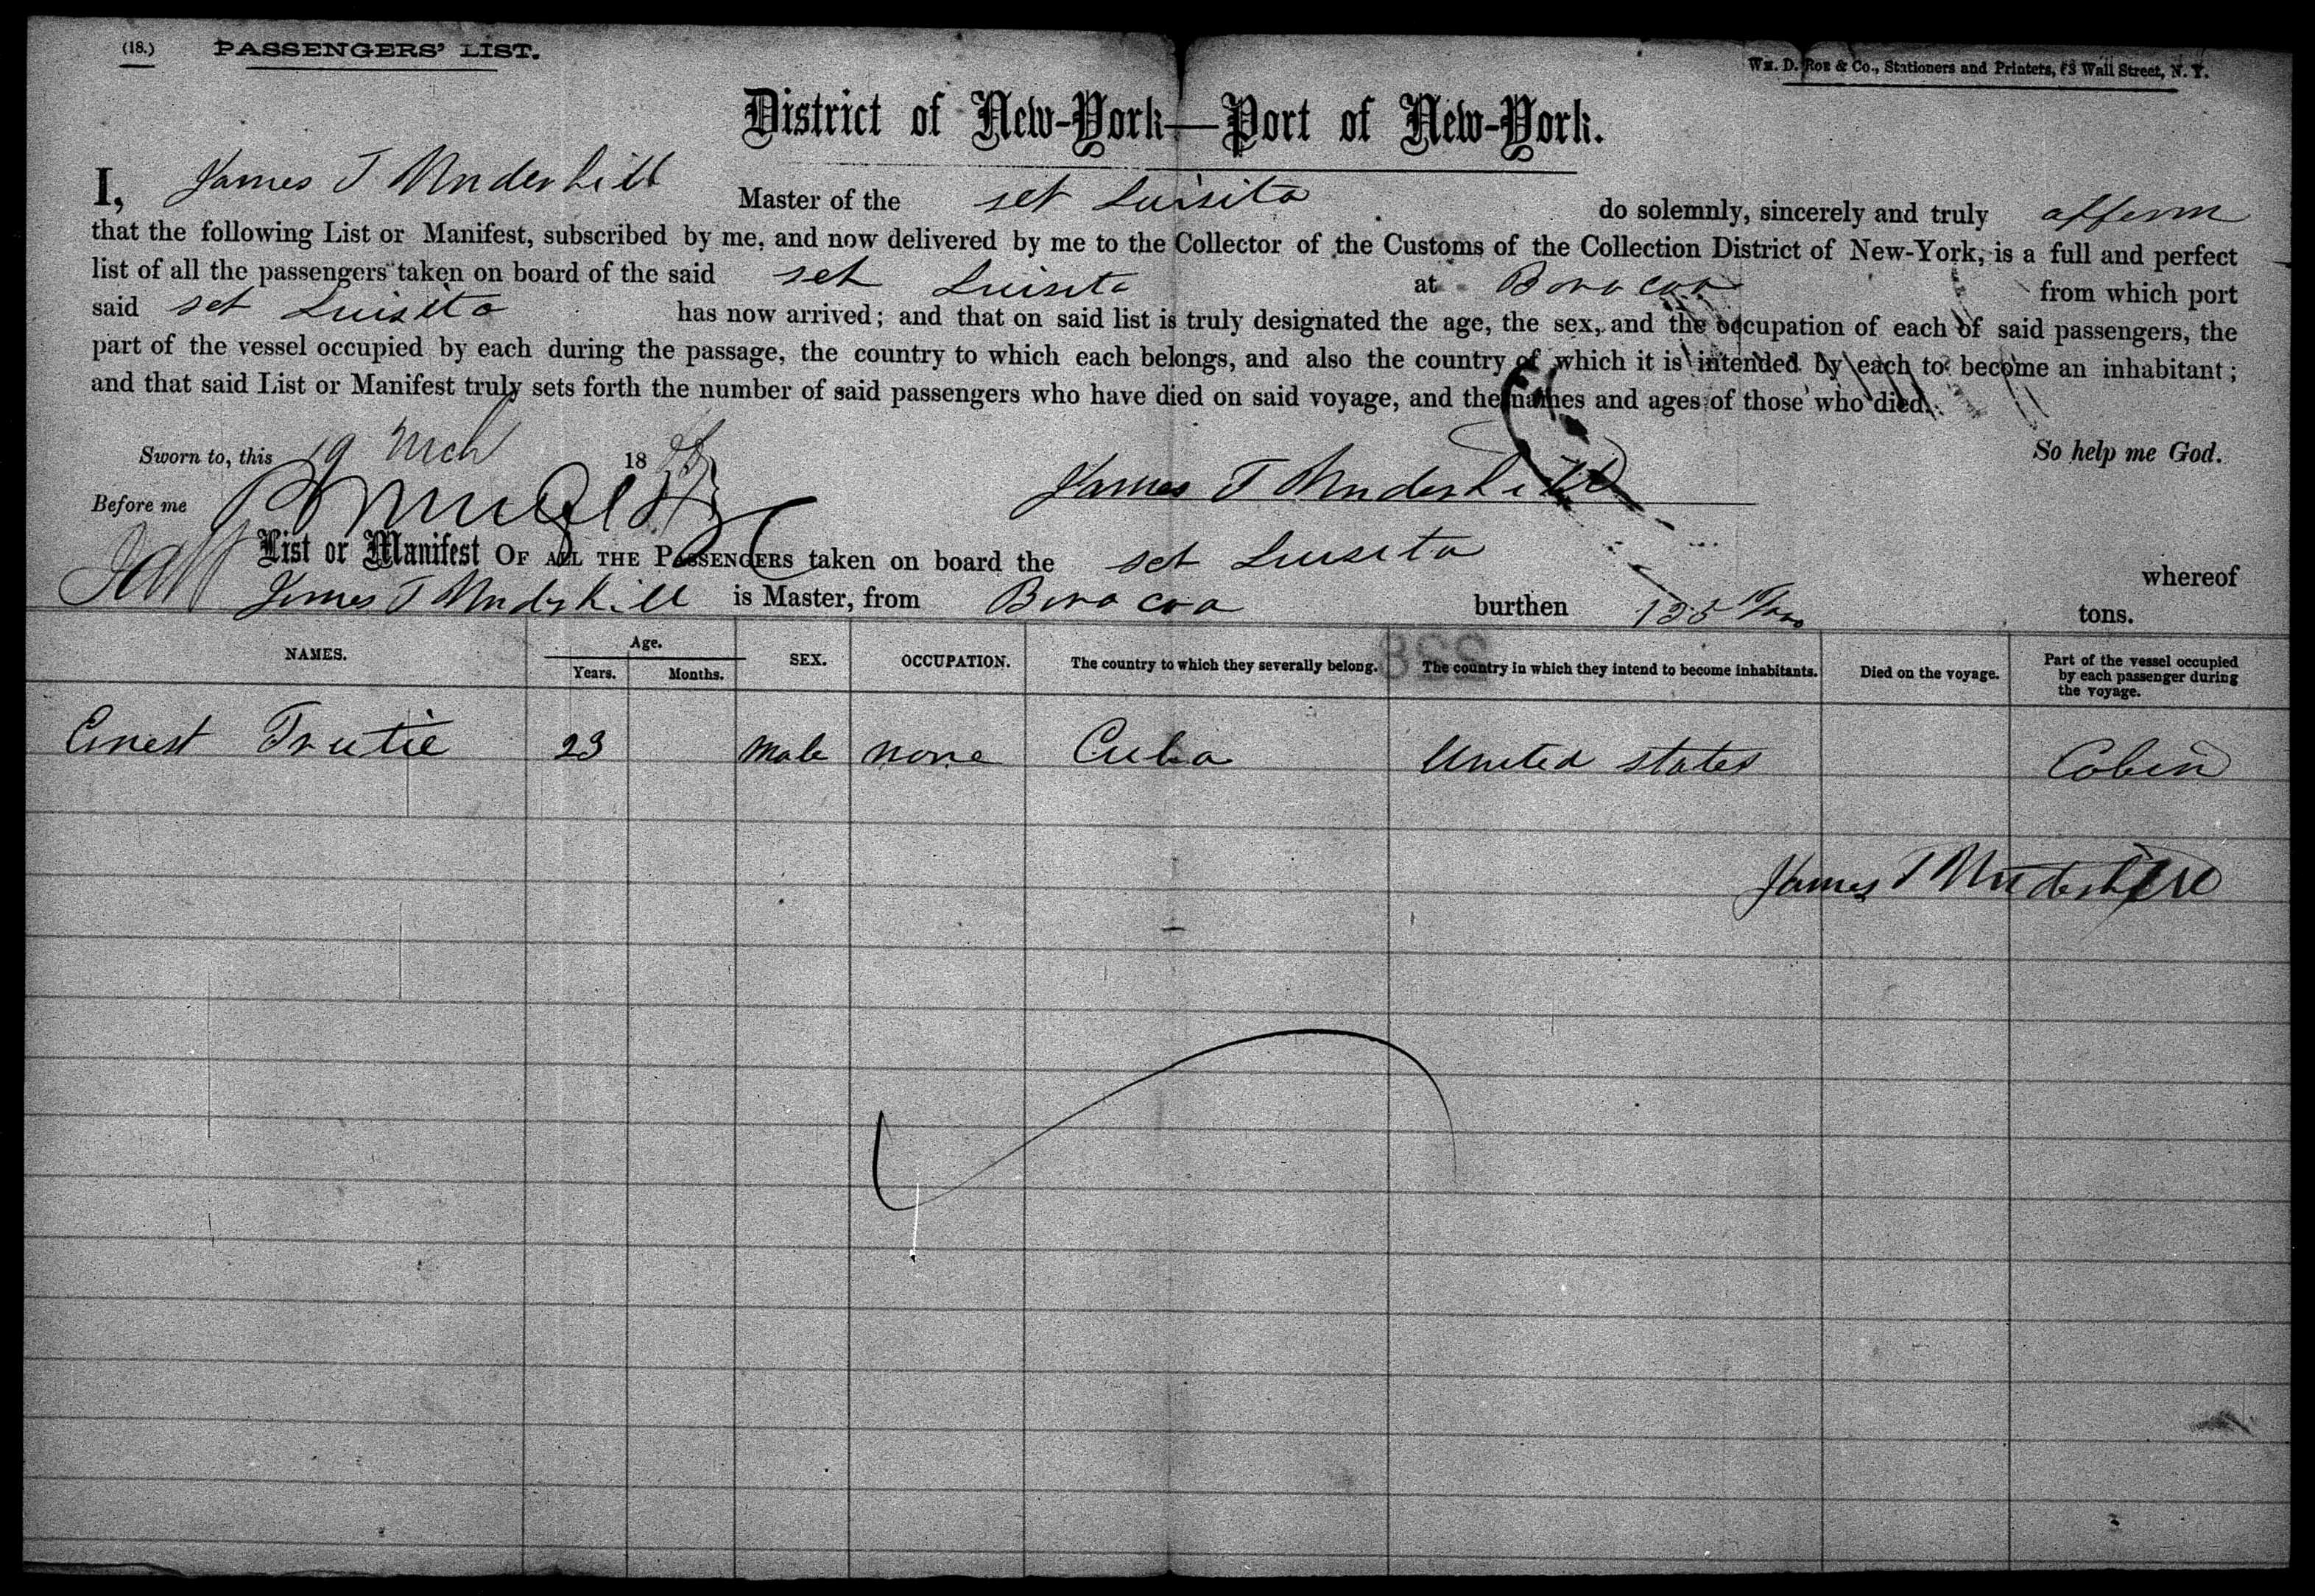 (18.) PASSENGERS' LIST.
Wm. D. Roe & Co., Stationers and Printers, 53 Wall Street, N. Y.
District of New-York—Port of New-York.
I, James T Underhill Master of the sch Luisita do solemnly, sincerely and truly affirm
that the following List or Manifest, subscribed by me, and now delivered by me to the Collector of the Customs of the Collection District of New-York, is a full and perfect
list of all the passengers taken on board of the said sch Luisita at Baracoa from which port
said sch Luisita has now arrived; and that on said list is truly designated the age, the sex, and the occupation of each of said passengers, the
part of the vessel occupied by each during the passage, the country to which each belongs, and also the country of which it is intended by each to become an inhabitant;
and that said List or Manifest truly sets forth the number of said passengers who have died on said voyage, and the names and ages of those who died.
So help me God.
Sworn to, this 19 Mch 18
Before me
James T Underhill
List or Manifest OF ALL THE PASSENGERS taken on board the sch Luisita whereof
James T Underhill is Master, from Baracoa burthen 125 Tons tons.
NAMES. Age. Years. Months. SEX. OCCUPATION. The country to which they severally belong. The country in which they intend to become inhabitants. Died on the voyage. Part of the vessel occupied by each passenger during the voyage.
Ernest Trutie 23 Male none Cuba United states Cabin
James T Underhill